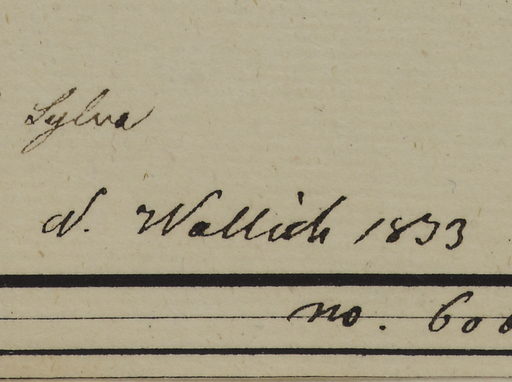 Sylva
N. Wallich 1833
no. 606